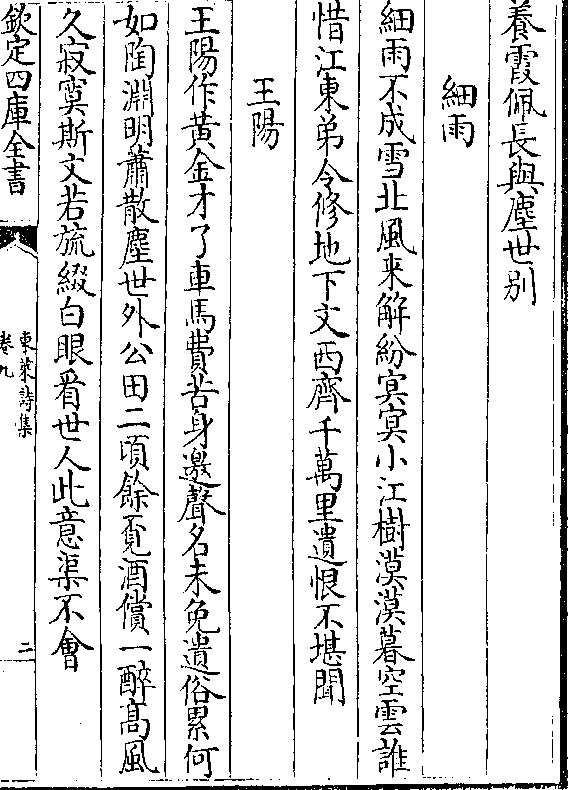 養霞佩長與塵世别
細雨
細雨不成雪北風来解紛冥冥小江樹漠漠暮空雲誰
惜江東弟令修地下文西齊千萬里遺恨不堪聞
王陽
王陽作黄金才了車馬費苦身邀聲名未免遺俗累何
如陶淵明蕭散塵世外公田二頃餘覔酒償一醉髙風
久寂寞斯文若旒綴白眼看世人此意渠不㑹
欽定四庫全書
東萊詩集
卷九
二